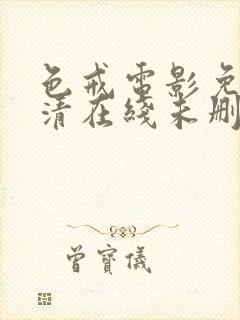 色戒电影免
清在线未删
曾寶儀